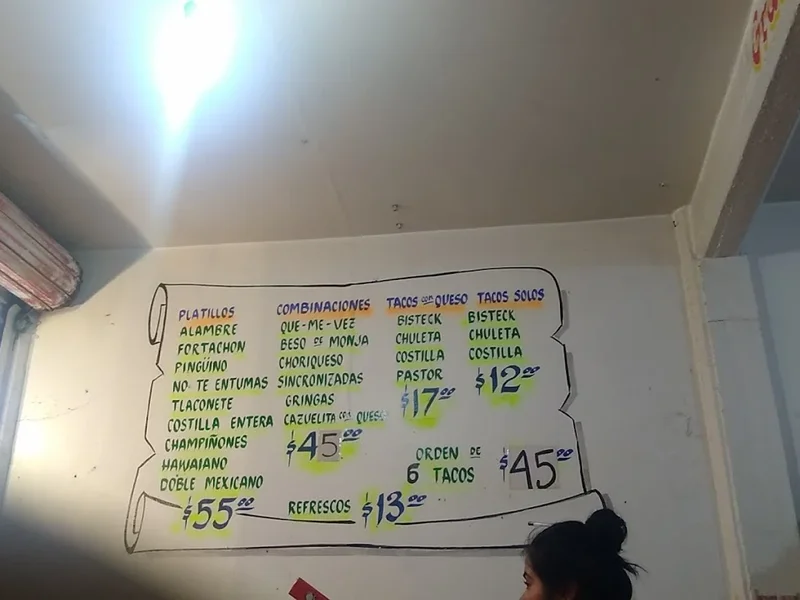 PLATILLOS
ALAMBRE
FORTACHON
PINGÜINO
NO TE ENTUMAS
TLACONETE
COSTILLA ENTERA
CHAMPIÑONES
HAWAIANO
DOBLE MEXICANO
$55.00
COMBINACIONES
QUE-ME-VEZ
BESO DE MONJA
CHORIQUESO
SINCRONIZADAS
GRINGAS
CAZUELITA CON QUESO
$45.00
TACOS CON QUESO
BISTECK
CHULETA
COSTILLA
PASTOR
$17.00
TACOS SOLOS
BISTECK
CHULETA
COSTILLA
$12.00
ORDEN DE
6 TACOS
$45.00
REFRESCOS $13.00